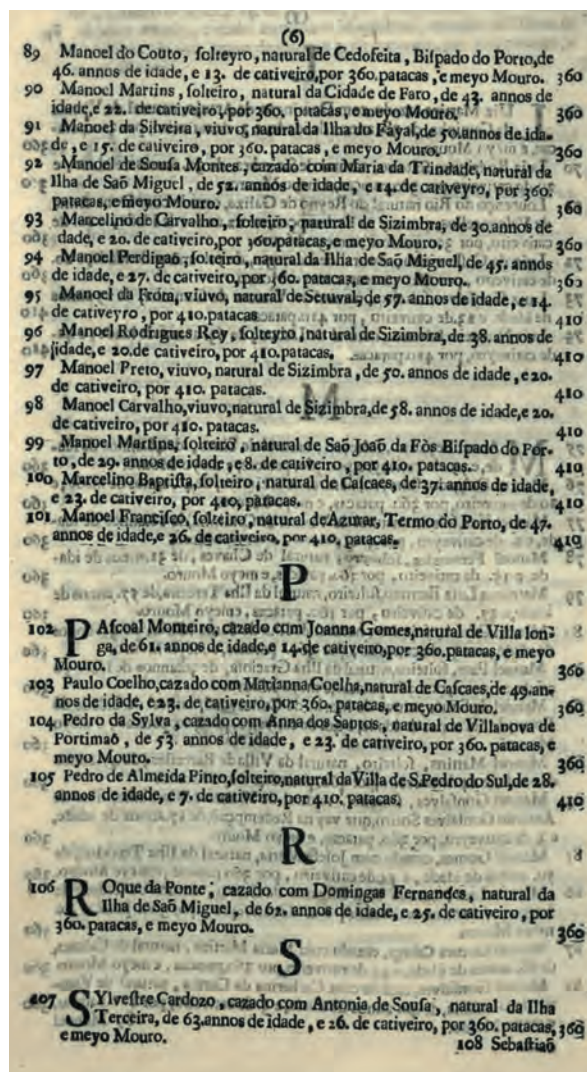 (6)
89 Manoel do Couto, ſolteyro, natural de Cedofeita, Biſpado do Porto, de
46. annos de idade, e 13. de cativeiro, por 360. patacas, e meyo Mouro. 360
90 Manoel Martins, ſolteiro, natural da Cidade de Faro, de 43. annos de
idade, e 22. de cativeiro, por 360. patacas, e meyo Mouro. 360
91 Manoel da Silveira, viuvo, natural da Ilha do Fayal, de 50. annos de ida-
de, e 15. de cativeiro, por 360. patacas, e meyo Mouro. 360
92 Manoel de Souſa Montes, cazado com Maria da Trindade, natural da
Ilha de Saõ Miguel, de 52. annos de idade, e 14. de cativeyro, por 360.
patacas, e meyo Mouro. 360
93 Marcelino de Carvalho, ſolteiro, natural de Sizimbra, de 30. annos de
dade, e 20. de cativeiro, por 360. patacas, e meyo Mouro. 360
94 Manoel Perdigaõ, ſolteiro, natural da Ilha de Saõ Miguel, de 45. annos
de idade, e 27. de cativeiro, por 360. patacas, e meyo Mouro. 360
95 Manoel da Frota, viuvo, natural de Setuval, de 57. annos de idade, e 14.
de cativeyro, por 410. patacas. 410
96 Manoel Rodrigues Rey, ſolteyro, natural de Sizimbra, de 38. annos de
idade, e 20. de cativeiro, por 410. patacas. 410
97 Manoel Preto, viuvo, natural de Sizimbra, de 50. annos de idade, e 20.
de cativeiro, por 410. patacas. 410
98 Manoel Carvalho, viuvo, natural de Sizimbra, de 58. annos de idade, e 20.
de cativeiro, por 410. patacas. 410
99 Manoel Martins, ſolteiro, natural de Saõ Joaõ da Fòs Biſpado do Por-
to, de 29. annos de idade, e 8. de cativeiro, por 410. patacas. 410
100 Marcelino Baptiſta, ſolteiro, natural de Caſcaes, de 37. annos de idade,
e 23. de cativeiro, por 410. patacas. 410
101 Manoel Franciſco, ſolteiro, natural de Azurar, Termo do Porto, de 47.
annos de idade, e 26. de cativeiro, por 410. patacas. 410
P
102 PAſcoal Monteiro, cazado com Joanna Gomes, natural de Villa lon-
ga, de 61. annos de idade, e 14. de cativeiro, por 360. patacas, e meyo
Mouro. 360
103 Paulo Coelho, cazado com Marianna Coelha, natural de Caſcaes, de 49. an-
nos de idade, e 23. de cativeiro, por 360. patacas, e meyo Mouro. 360
104 Pedro da Sylva, cazado com Anna dos Santos, natural de Villanova de
Portimaõ, de 53 annos de idade, e 23. de cativeiro, por 360. patacas, e
meyo Mouro. 360
105 Pedro de Almeida Pinto, ſolteiro, natural da Villa de S. Pedro do Sul, de 28.
annos de idade, e 7. de cativeiro, por 410. patacas. 410
R
106 ROque da Ponte, cazado com Domingas Fernandes, natural da
Ilha de Saõ Miguel, de 62. annos de idade, e 25. de cativeiro, por
360. patacas, e meyo Mouro. 360
S
107 SYlveſtre Cardozo, cazado com Antonia de Souſa, natural da Ilha
Terceira, de 63. annos de idade, e 26. de cativeiro, por 360. patacas, 360
e meyo Mouro.
108 Sebaſtiaõ